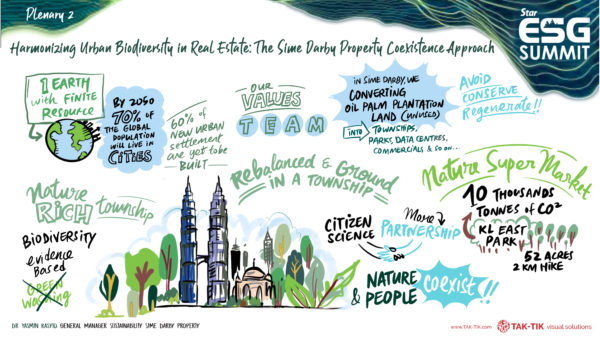 Plenary 2
Star
ESG
SUMMIT
Harmonizing Urban Biodiversity in Real Estate: The Sime Darby Property Coexistence Approach
1 EARTH
with FINITE
RESOURCE
BY 2050
70% OF
THE GLOBAL
POPULATION
WILL LIVE IN
CITIES
60% of
NEW URBAN
settlement
are yet to be
BUILT
OUR
VALUES
TEAM
IN SIME DARBY, WE
CONVERTING
OIL PALM PLANTATION
LAND (UNUSED)
INTO TOWNSHIPS,
PARKS, DATA CENTRES,
COMMERCIALS & SO ON...
AVOID
CONSERVE
Regenerate!!
Nature
RICH township
BIODIVERSITY
evidence
Based
GREEN
Washing
Rebalanced & Ground
IN A TOWNSHIP
CITIZEN
SCIENCE
More
PARTNERSHIP
NATURE
& PEOPLE
coexist!!
Nature Super Market
10 THOUSANDS
TONNES OF CO2
KL EAST
PARK
52 ACRES
2 KM HIKE
DR YASMIN RASYID GENERAL MANAGER SUSTAINABILITY SIME DARBY PROPERTY
www.TAK-TIK.com
TAK-TIK visual solutions